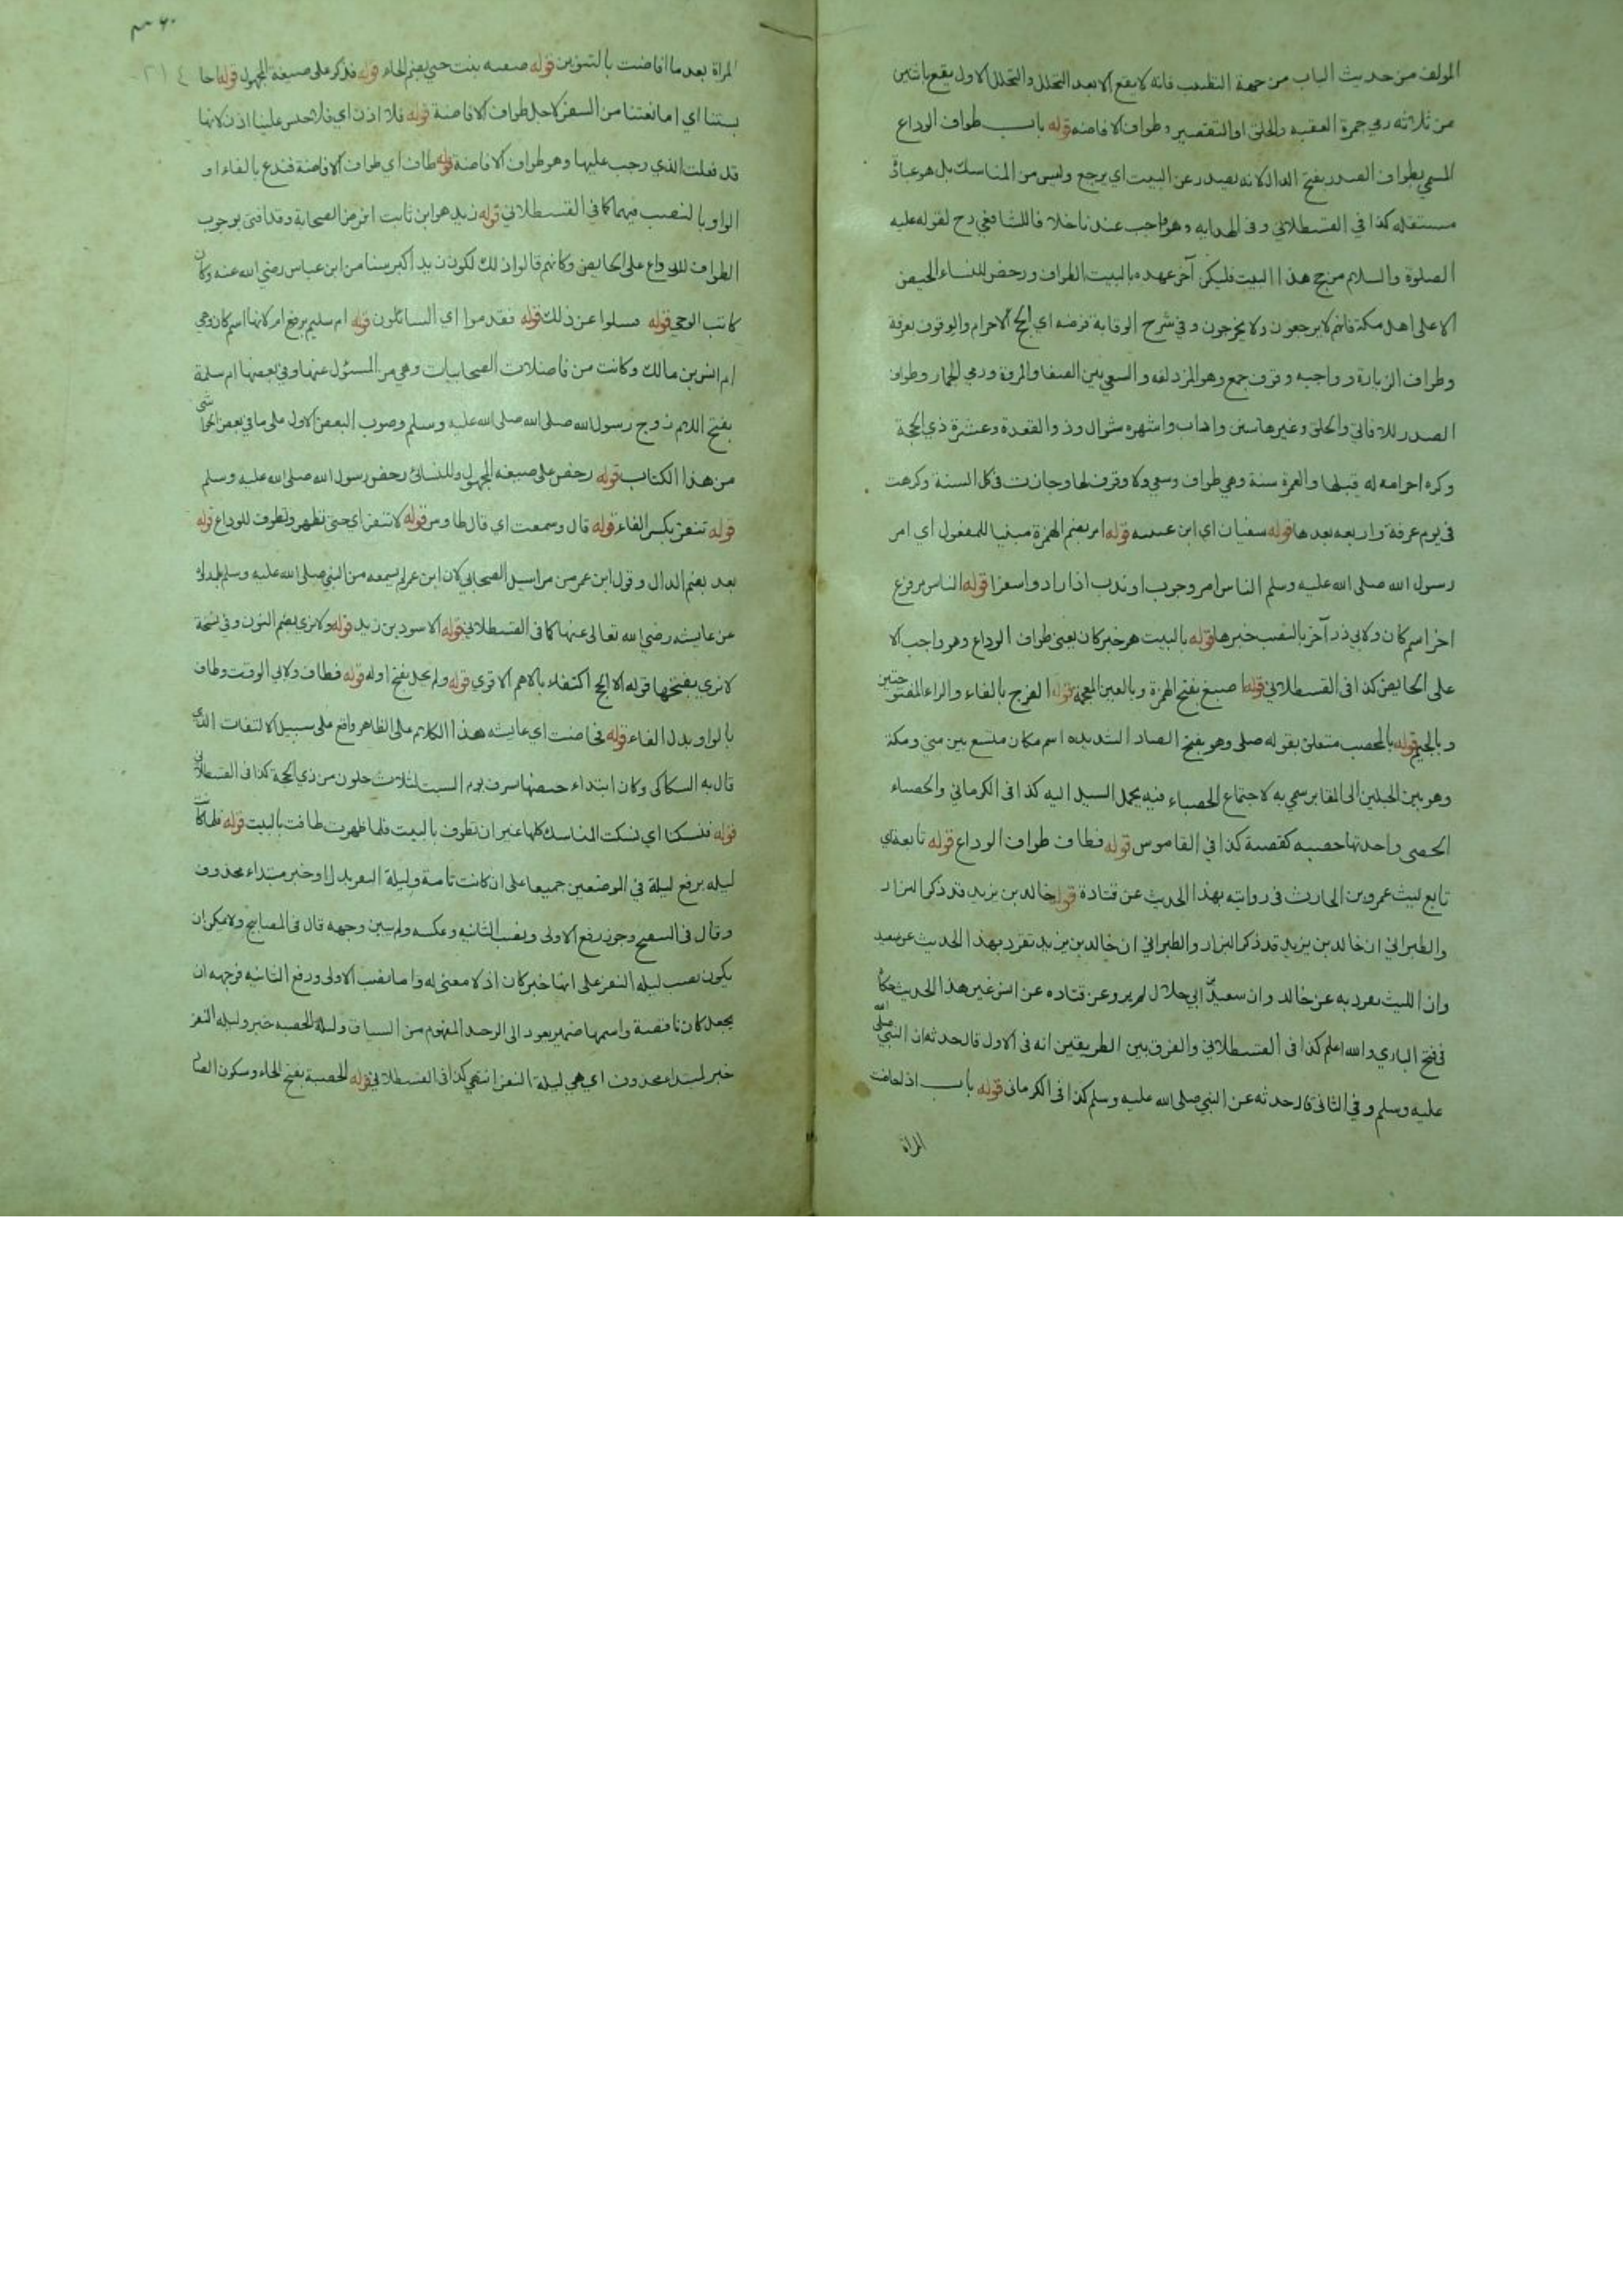 المولف من حديث الباب من جهة التطيب فانه لا يقع الا بعد التحلل والتحلل الاول يقع باثنين
من ثلاثه رمي جمرة العقبه والحلق او التقصير وطواف الافاضه قوله باب طواف الوداع
المسمي بطواف الصدر بفتح الدال لانه يصدر عن البيت اي يرجع وليس من المناسك بل هو عبادة
مستقله كذا في القسطلاني وفى الهدايه وهو واجب عندنا خلافا للشافعي رح لقوله عليه
الصلوة والسلام من حج هذا البيت فليكن آخر عهده بالبيت الطواف ورخص للنساء الحيض
الا على اهل مكة فانهم لا يرجعون ولا يخرجون وفي شرح الوقاية فرضه اي الحج الاحرام والوقوف بعرفة
وطواف الزيارة وواجبه وقوف جمع وهو المزدلفه والسعي بين الصفا والمروة ورمي الجمار وطواف
الصدر للافاقي والحلق وغيرها سنن واداب واشهره شوال وذو القعدة وعشرة ذي الحجة
وكره احرامه له قبلها والعمرة سنة وهي طواف وسعي ولا وقوف لها وجازت في كل السنة وكرهت
في يوم عرفة واربعه بعدها قوله سفيان اي ابن عيينه قوله امر بضم الهمزة مبنيا للمفعول اي امر
رسول الله صلى الله عليه وسلم الناس امر وجوب او ندب اذا ارادوا سفرا قوله الناس مرفوع
اخر اسم كان ولابي ذر آخر بالنصب خبرها قوله بالبيت هو خبر كان يعني طواف الوداع وهو واجب الا
على الحايض كذا فى القسطلاني قوله اصبغ بفتح الهمزة وبالغين المعجمة قوله الفرج بالفاء والراء المفتوحتين
وبالجيم قوله بالمحصب متعلق بقوله صلى وهو بفتح الصاد المشدده اسم مكان متسع بين منى ومكة
وهو بين الجبلين الى المقابر سمي به لاجتماع الحصباء فيه بحمل السيل اليه كذا فى الكرماني والحصباء
الحصى واحدتها حصبه كقصبة كذا في القاموس قوله فطاف طواف الوداع قوله تابعه اي
تابع ليث عمرو بن الحارث فى روايته بهذا الحديث عن قتادة قوله خالد بن يزيد قد ذكر البزار
والطبراني ان خالد بن يزيد قد ذكر البزار والطبراني ان خالد بن يزيد تفرد بهذا الحديث عن سعيد
وان الليث تفرد به عن خالد وان سعيد بن ابي هلال لم يرو عن قتاده عن انس غير هذا الحديث حكاه
فى فتح الباري والله اعلم كذا فى القسطلاني والفرق بين الطريقين انه فى الاول قال حدثه ان النبي صلى الله
عليه وسلم وفي الثانى قال حدثه عن النبي صلى الله عليه وسلم كذا فى الكرمانى قوله باب اذا حاضت
المراة
المراة بعد ما افاضت بالتنوين قوله صفيه بنت حيي بضم الحاء قوله فذكر على صيغة المجهول قوله احا
بستنا اي امانعتنا من السفر لاجل طواف الافاضة قوله فلا اذن اي فلا حبس علينا اذن لانها
قد فعلت الذي وجب عليها وهو طواف الافاضة قوله طافت اي طواف الافاضة فندع بالفاء او
الواو بالنصب فيهما كما في القسطلاني قوله زيد هو ابن ثابت افرض الصحابة وقد افتى بوجوب
الطواف للوداع على الحايض وكانهم قالوا ذلك لكون زيد اكبر سنا من ابن عباس رضي الله عنه وكان
كاتب الوحي قوله فسلوا عن ذلك قوله فقدموا اي السائلون قوله ام سليم برفع ام لانها اسم كان وهي
ام انس بن مالك وكانت من فاضلات الصحابيات وهي من المسئول عنها وفي بعضها ام سلمة
بفتح اللام زوج رسول الله صلى الله صلى الله عليه وسلم وصوب البعض الاول على ما في بعض الحواشي
من هذا الكتاب قوله رخص على صيغه المجهول وللنسائى رخص رسول الله صلى الله عليه وسلم
قوله تنفر بكسر الفاء قوله قال وسمعت اي قال طاوس قوله لا تنفر اي حتى تطهر وتطوف للوداع قوله
بعد بضم الدال وقول ابن عمر من مراسيل الصحابي لان ابن عمر لم يسمعه من النبي صلى الله عليه وسلم
عن عايشه رضي الله تعالى عنها كما فى القسطلاني قوله الاسود بن زيد قوله ولا نرى بضم النون وفي نسخة
لا نري بفتحها قوله الا الحج اكتفاء بالاهم الاقوي قوله ولم يحل بفتح اوله قوله فطاف ولابي الوقت وطاف
بالواو بدل الفاء قوله فحاضت اي عايشه هذا الكلام على الظاهر واقع على سبيل الالتفات الذي
قال به السكاكى وكان ابتداء حيضها بسرف يوم السبت لثلاث خلون من ذي الحجة كذا فى القسطلاني
قوله فنسكنا اي نسكت المناسك كلها غير ان تطوف بالبيت فلما طهرت طافت بالبيت قوله فلما كانت
ليله برفع ليلة في الموضعين جميعا على ان كانت تامة وليلة النفر بدل او خبر مبتداء محذوف
وقال فى التنقيح وجوز رفع الاولى ونصب الثانيه وعكسه ولم يبين وجهه قال فى المصابيح ولا يمكن ان
يكون نصب ليله النفر على انها خبر كان اذ لا معنى له واما نصب الاولى ورفع الثانيه فوجهه ان
يجعل كان ناقصة واسمها ضمير يعود الى الرحيل المفهوم من السياق وليلة الحصبه خبر وليله النفر
خبر لمبتداء محذوف اي هي ليلة النفر انتهي كذا فى القسطلاني قوله الحصبة بفتح الحاء وسكون الصاد